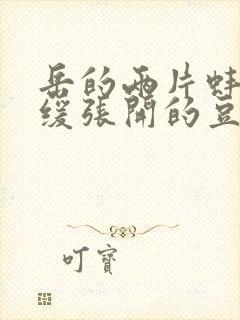 岳的两片蚌
缓张開的豆
叮寶